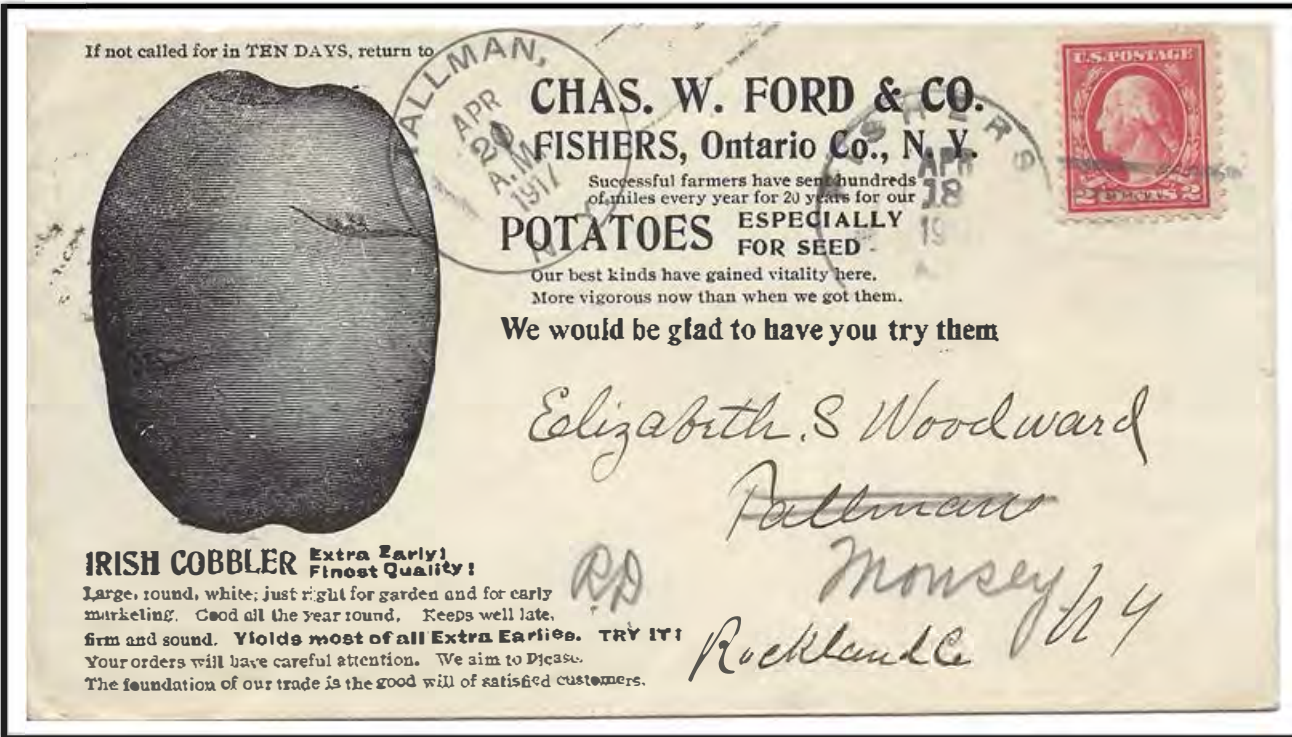 If not called for in TEN DAYS, return to
TALLMAN,
APR
20
A.M.
1917
N.
CHAS. W. FORD & CO.
FISHERS, Ontario Co., N. Y.
Successful farmers have sent hundreds
of miles every year for 20 years for our
POTATOES ESPECIALLY
FOR SEED
Our best kinds have gained vitality here.
More vigorous now than when we got them.
We would be glad to have you try them
FISHERS
APR
18
19
U.S. POSTAGE
2 CENTS 2
Elizabeth. S Woodward
Tallmans
Monsey
N Y
Rockland Co
RD
IRISH COBBLER Extra Early!
Finest Quality!
Large, round, white; just right for garden and for early
marketing. Good all the year round. Keeps well late,
firm and sound. Yields most of all Extra Earlies. TRY IT!
Your orders will have careful attention. We aim to Please.
The foundation of our trade is the good will of satisfied customers.